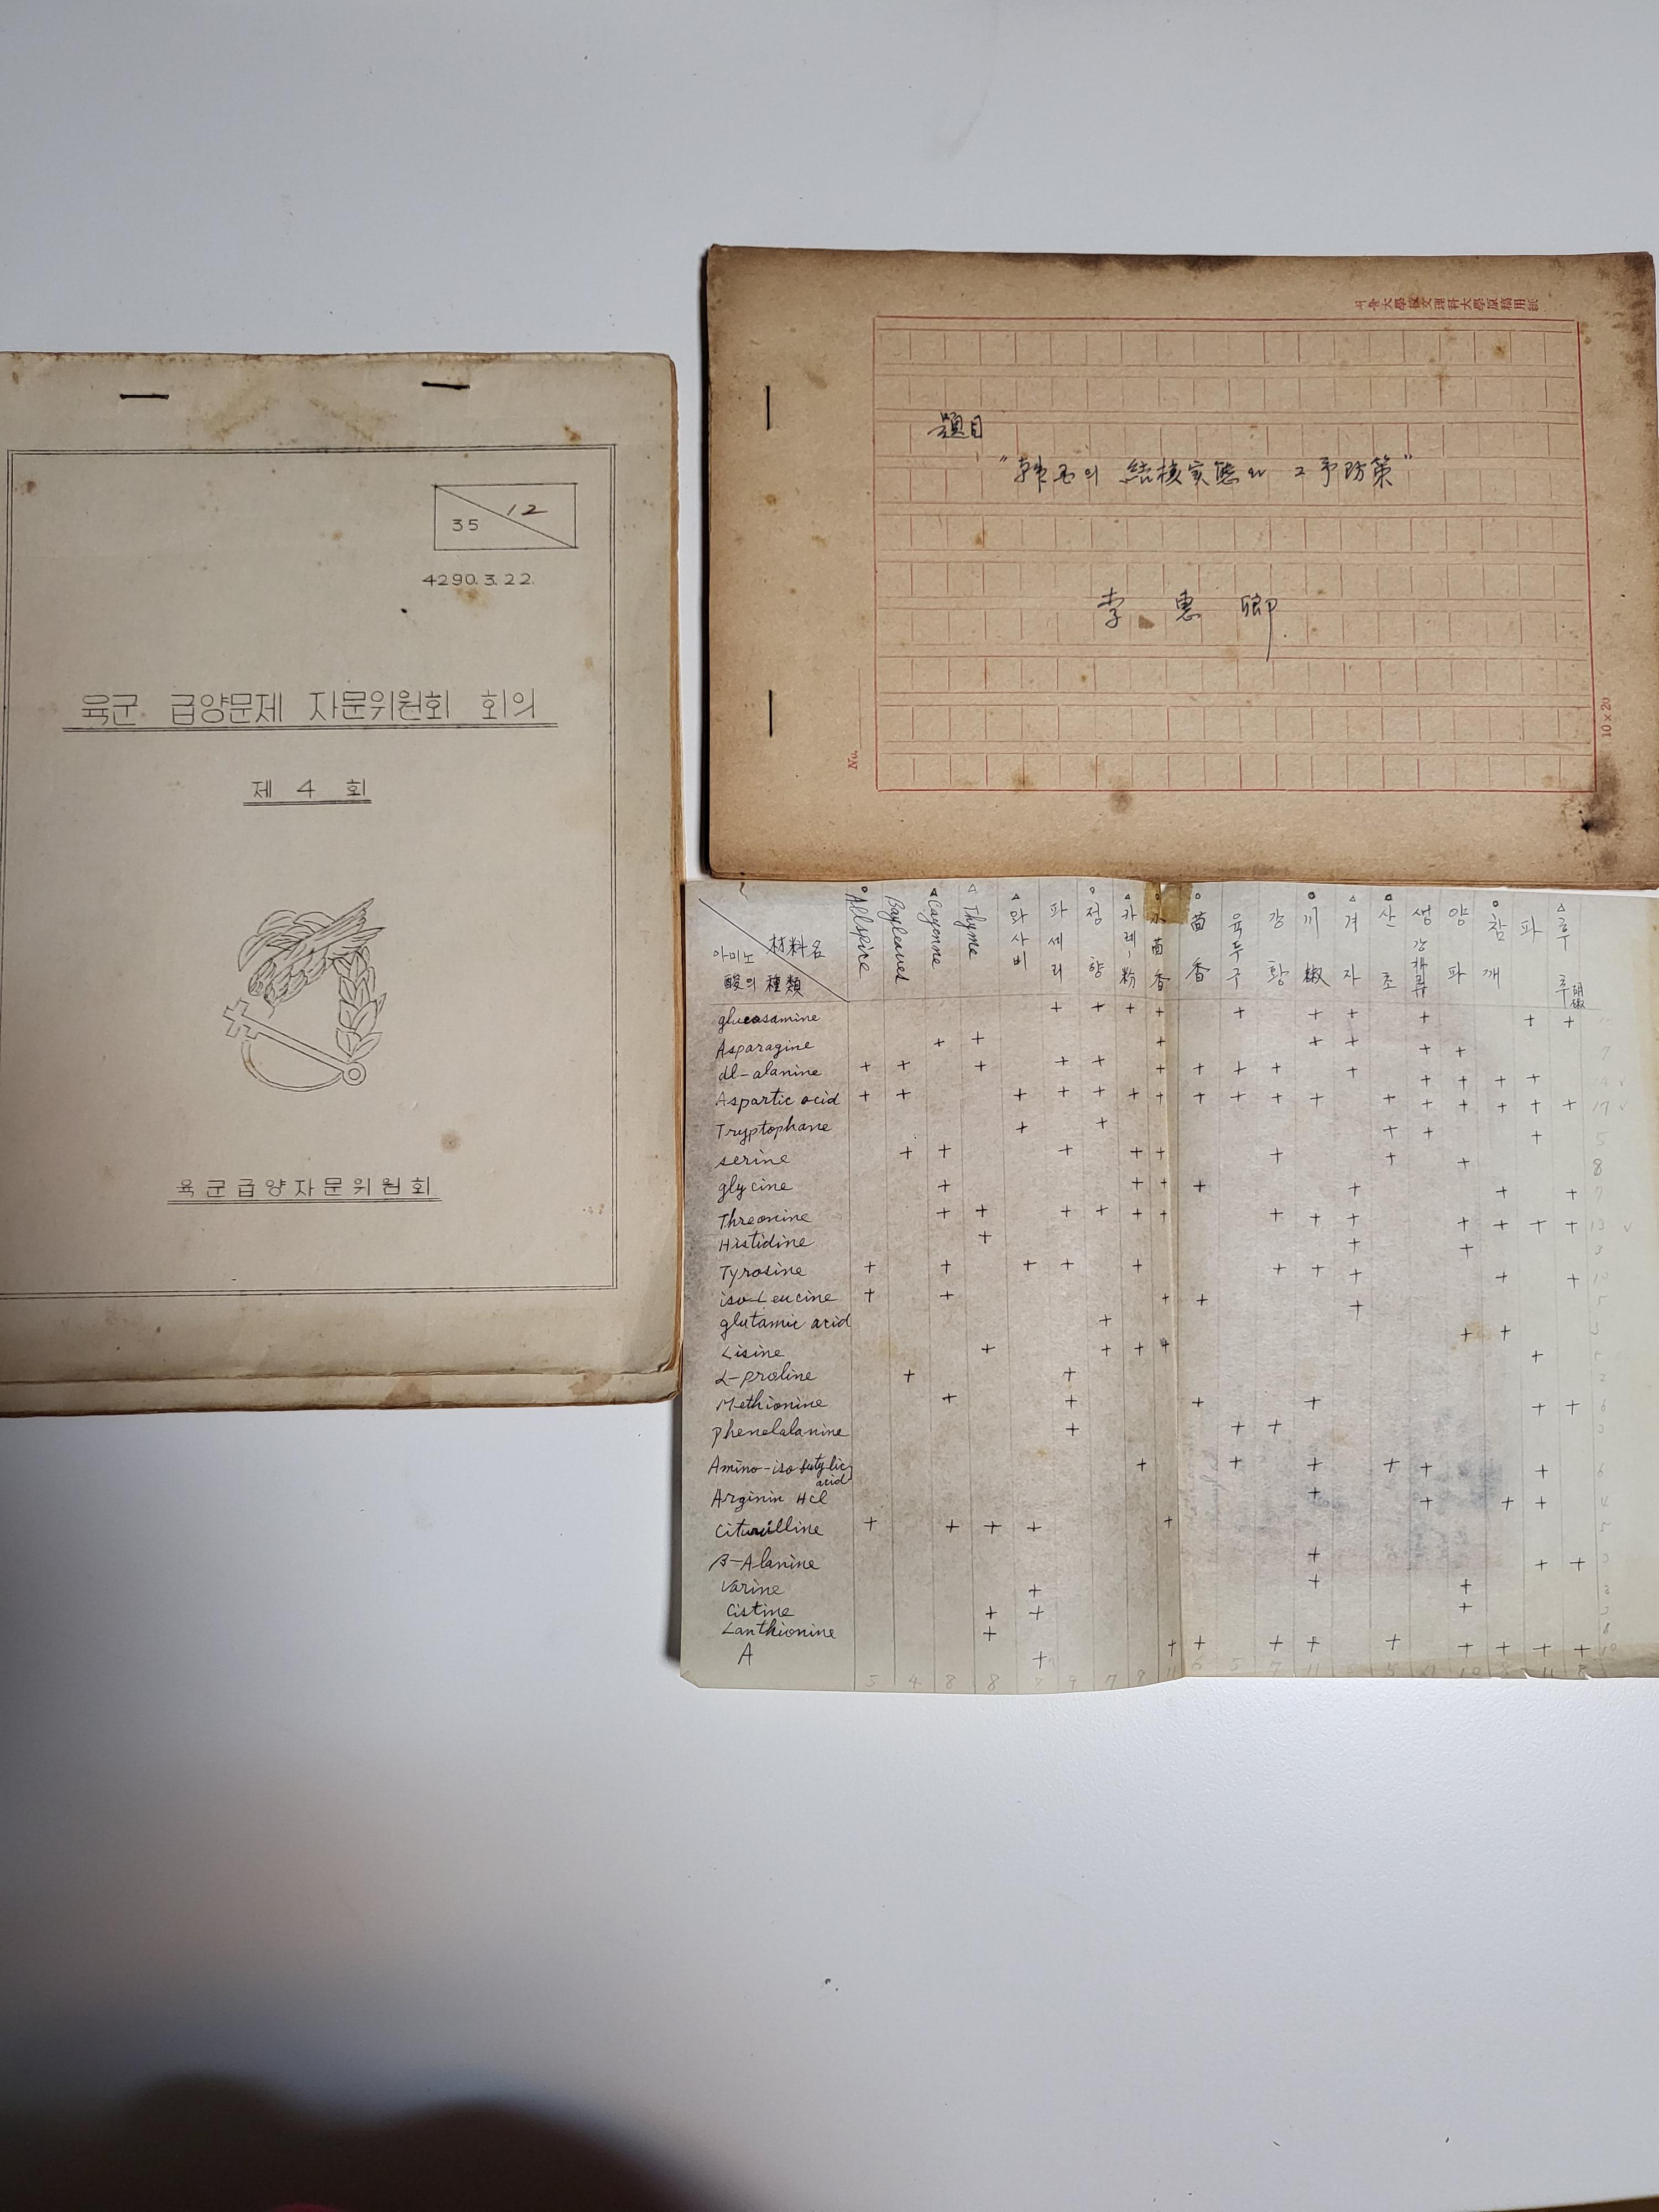 35 12
4290.3.22.
육군 급양문제 자문위원회 회의
제 4 회
육군급양자문위원회
서울大學校文理科大學原稿用紙
題目
"韓国의 結核実態와 그 予防策"
李 惠 卿
No.
10×20
材料名
아미노酸의 種類
Allspice
Bayleaves
Cayenne
Thyme
와사비
파세리
정향
카레-粉
小茴香
茴香
육두구
강황
겨자
산초
생강
양파
참깨
파
후추
胡椒
glucosamine + + + + + + + + + +
Asparagine + + + + + + +
dl-alanine + + + + + + + + + + + + + +
Aspartic acid + + + + + + + + + + + + + + + + + 17 ✓
Tryptophane + + + + + 5
serine + + + + + + + + 8
glycine + + + + + + + 7
Threonine + + + + + + + + + + + + + 13 ✓
Histidine + + + 3
Tyrosine + + + + + + + + + + 10
iso-Leucine + + + + + 5
glutamic acid + + + 3
Lisine + + + + + 5
L-proline + + 2
Methionine + + + + + + 6
phenelalanine + + + 3
Amino-iso butylic acid + + + + + + 6
Arginin Hcl + + + + 4
Citurulline + + + + + 5
β-Alanine + + + 3
Varine + + + 3
Cistine + + + 3
Lanthionine +
A + + + + + + + + + + 10
5 4 8 8 9 7 8 11 6 5 7 11 5 10 8 11 8